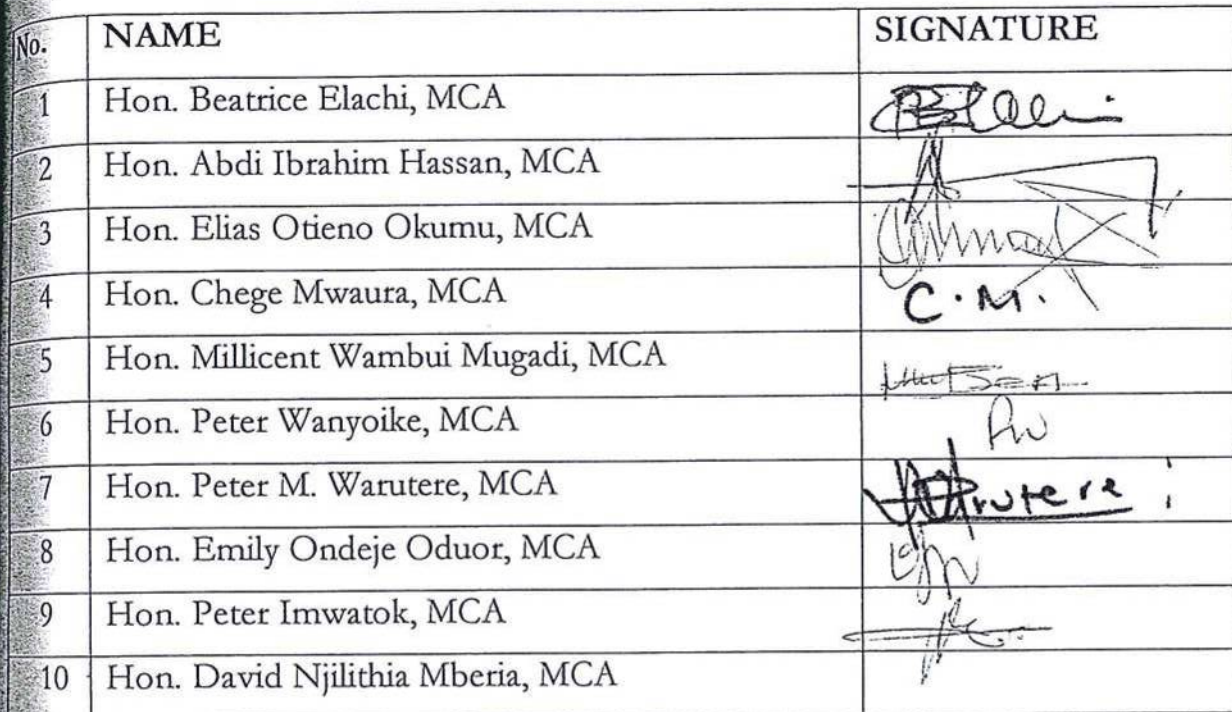 No. NAME SIGNATURE
1 Hon. Beatrice Elachi, MCA
2 Hon. Abdi Ibrahim Hassan, MCA
3 Hon. Elias Otieno Okumu, MCA
4 Hon. Chege Mwaura, MCA C.M.
5 Hon. Millicent Wambui Mugadi, MCA
6 Hon. Peter Wanyoike, MCA
7 Hon. Peter M. Warutere, MCA
8 Hon. Emily Ondeje Oduor, MCA
9 Hon. Peter Imwatok, MCA
10 Hon. David Njilithia Mberia, MCA